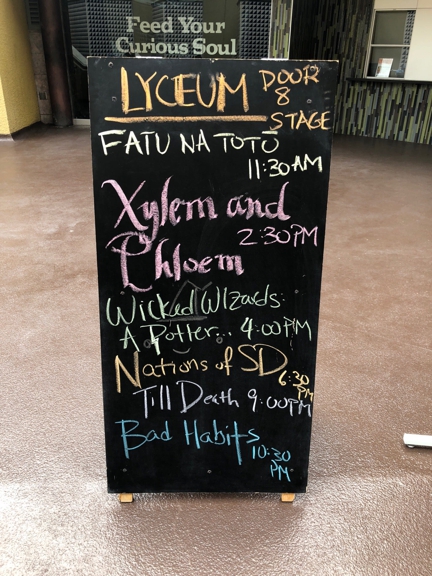 Feed Your
Curious Soul
LYCEUM DOOR
8
STAGE
FATU NA TOTO
11:30 AM
Xylem and
2:30 PM
Phloem
Wicked Wizards:
A Potter... 4:00 PM
Nations of SD
6:30
PM
Till Death 9:00 PM
Bad Habits
10:30
PM